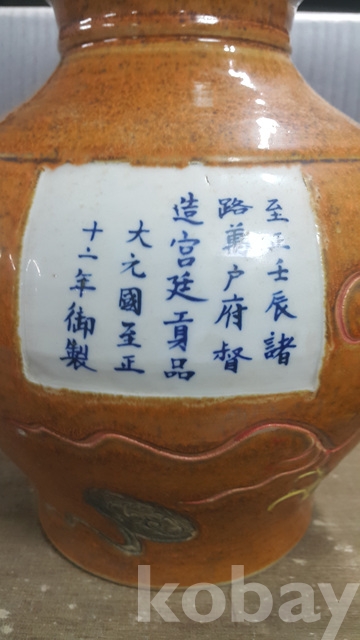 至正壬辰諸
路萬户府督
造宮廷貢品
大元國至正
十二年御製
kobay